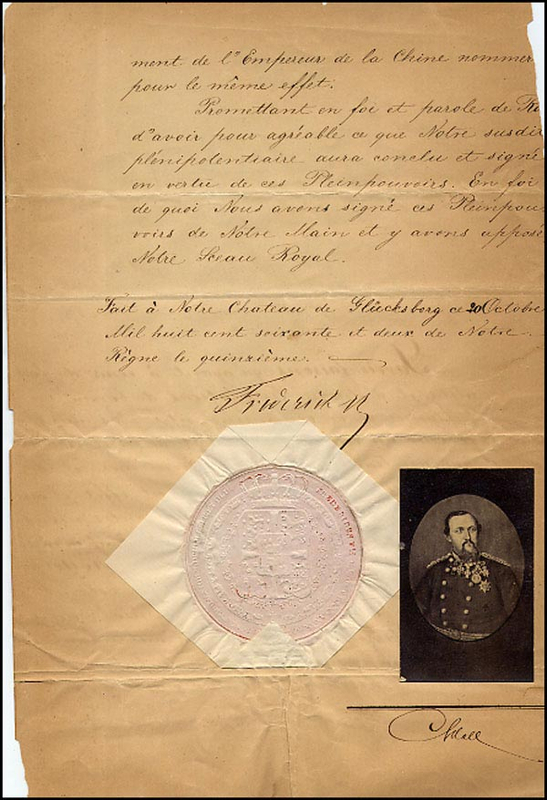 ment de l'Empereur de la Chine nommer
pour le même effet.
Promettant en foi et parole de Ro
d'avoir pour agréable ce que Notre susdit
plénipotentiaire aura conclu et signé
en vertu de ces Pleinpouvoirs. En foi
de quoi Nous avons signé ces Pleinpou-
voirs de Notre Main et y avons apposé
Notre Sceau Royal.
Fait à Notre Chateau de Glücksborg ce 20 Octobre
Mil huit cent soixante et deux de Notre
Règne le quinzième.
Frederick R